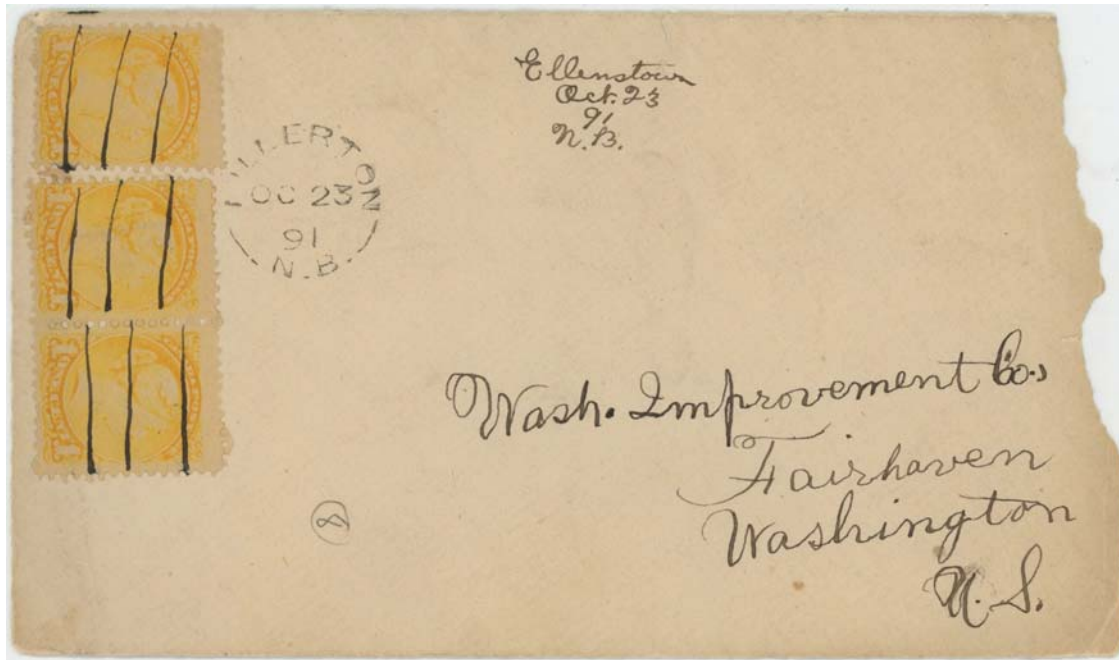 Ellenstown
Oct. 23
91
N.B.
OC 23
91
N.B.
Wash. Improvement Co.,
Fairhaven
Washington
U.S.
8